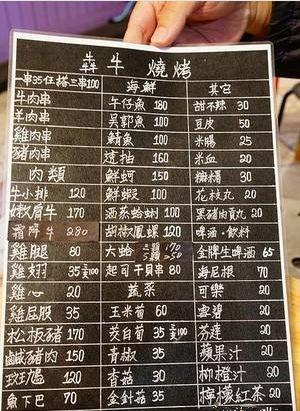 犇牛燒烤
一串35任搭三串100
牛肉串
羊肉串
雞肉串
豬肉串
肉類
牛小排 120
嫩肩牛 170
霜降牛 280
雞腿 80
雞翅 35 三支100
雞心 20
雞屁股 35
松板豬 170
鹹豬肉 150
120
魚下巴 70
海鮮
午仔魚 180
吳郭魚 100
鯖魚 100
透抽 160
鮮蚵 150
鮮蝦 100
酒蒸蛤蜊 100
胡椒鳳螺 120
大蛤 三顆170
起司干貝串 80
蔬菜
玉米筍 60
茭白筍 35 三支100
青椒 35
香菇 30
金針菇 35
其它
甜不辣 30
豆皮 50
米腸 25
米血 20
30
花枝丸 20
黑豬肉貢丸 20
啤酒、飲料
金牌生啤酒 65
海尼根 70
可樂 20
雪碧 20
芬達 20
蘋果汁 20
柳橙汁 20
檸檬紅茶 20